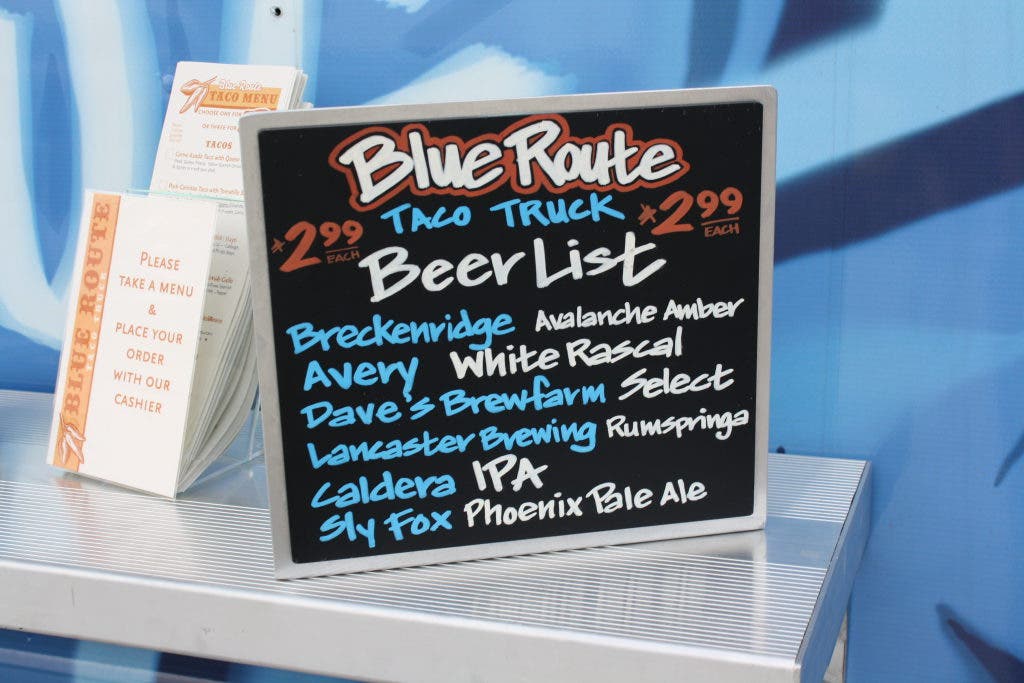 Blue Route
TACO MENU
CHOOSE ONE FOR
OR THREE FOR
TACOS
BLUE ROUTE
TACO TRUCK
PLEASE
TAKE A MENU
&
PLACE YOUR
ORDER
WITH OUR
CASHIER
Blue Route
TACO TRUCK
2.99 EACH
2.99 EACH
Beer List
Breckenridge Avalanche Amber
Avery White Rascal
Dave's Brewfarm Select
Lancaster Brewing Rumspringa
Caldera IPA
Sly Fox Phoenix Pale Ale